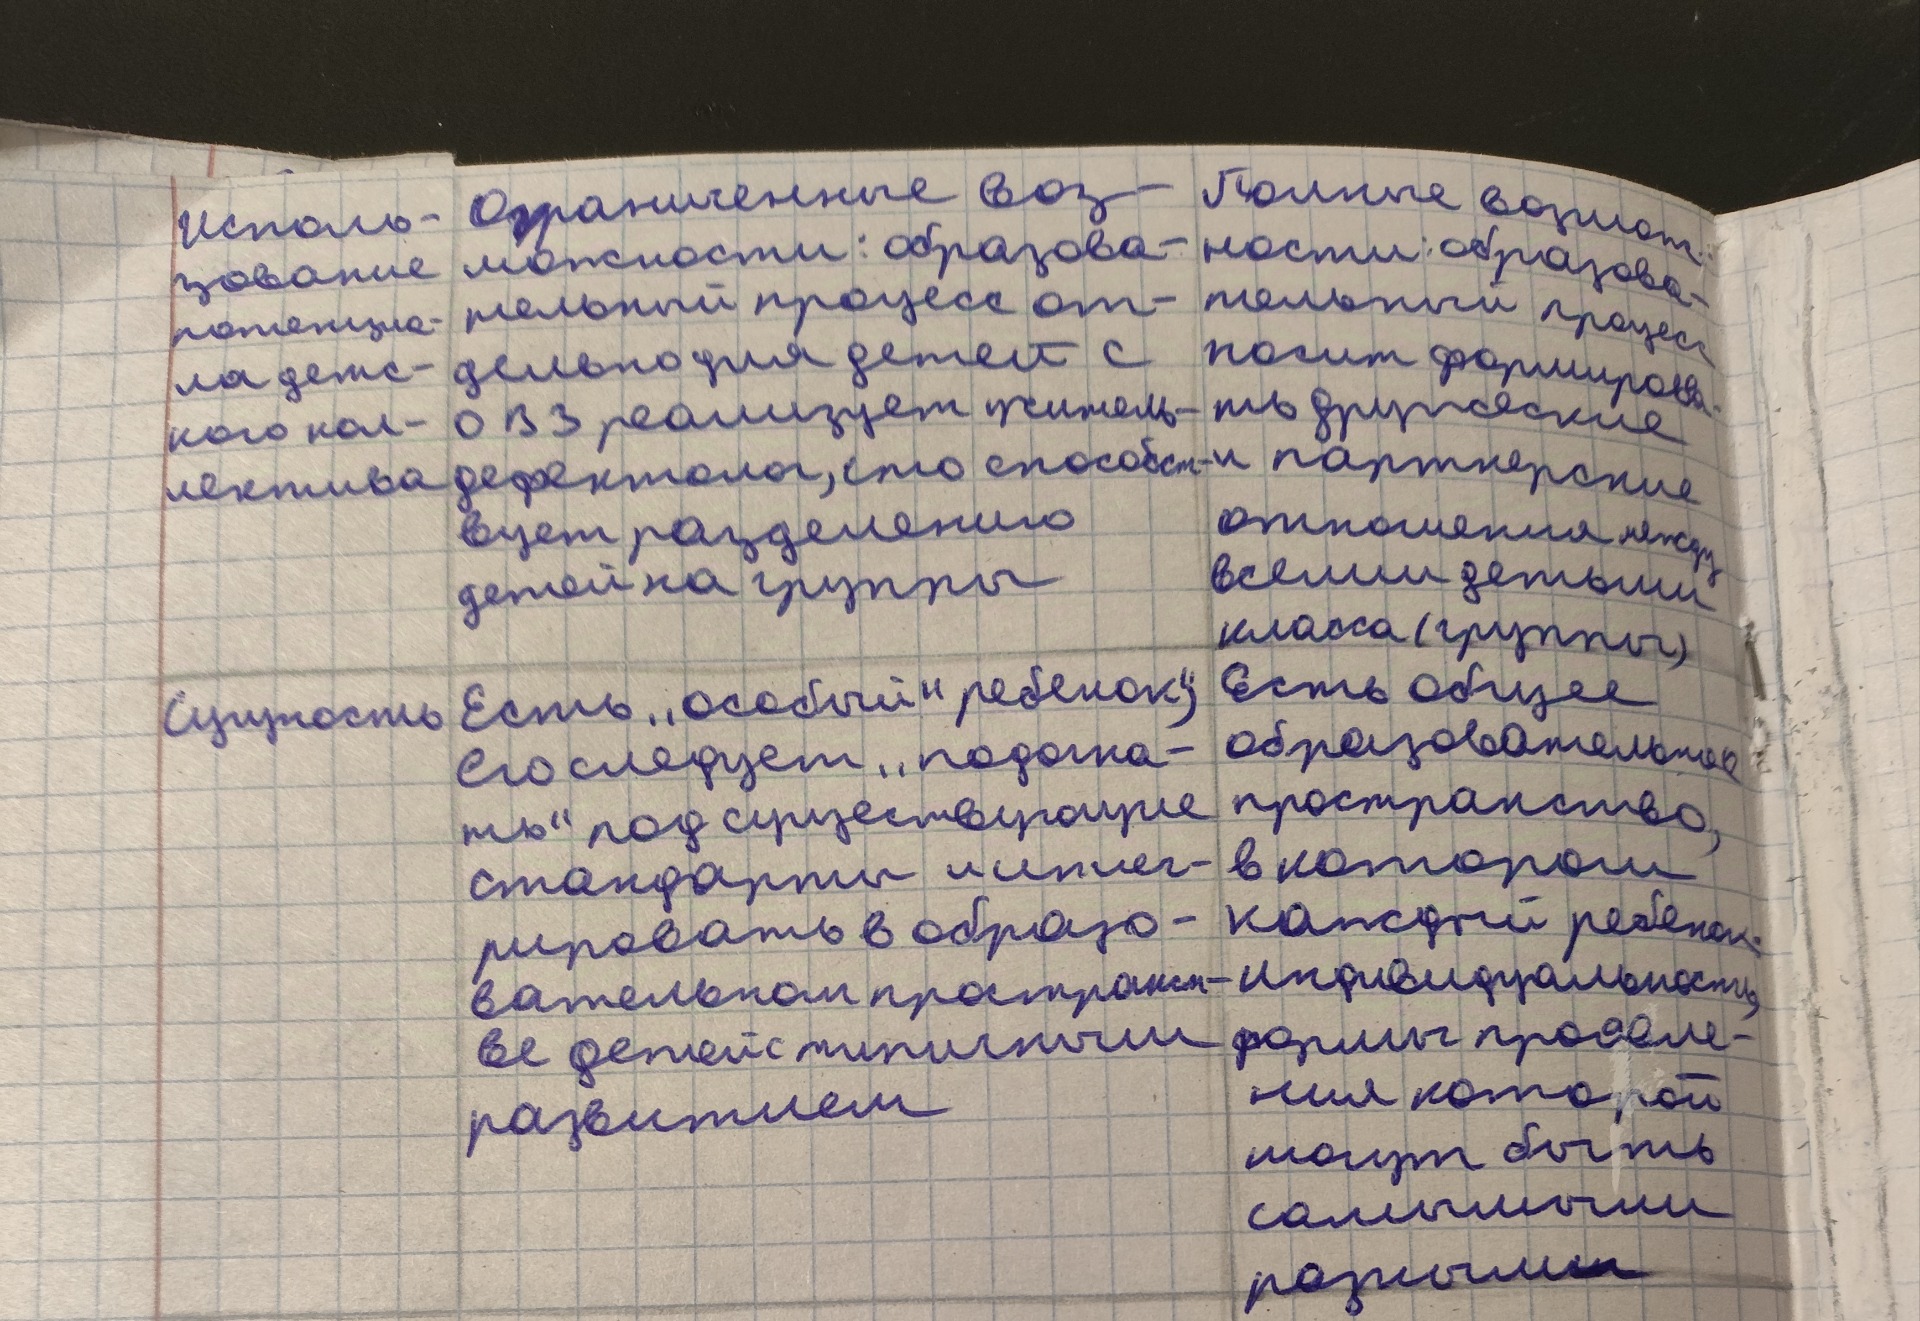 Исполь-
зование
потенциа-
ла детс-
кого кол-
лектива
Ограниченные воз-
можности: образова-
тельный процесс от-
дельно для детей с
ОВЗ реализует учитель-
дефектолог, что способст-
вует разделению
детей на группы
Полные возмож-
ности: образова-
тельный процесс
носит формирова-
ть дружеские
и партнерские
отношения между
всеми детьми
класса (группы)
Сущность
Есть „особый“ ребенок“,
его следует „подогна-
ть“ под существующие
стандарты интег-
рировать в образо-
вательном пространст-
ве детей с типичными
развитием
Есть общее
образовательное
пространство,
в котором
каждый ребенок-
индивидуальность,
формы проявле-
ния которой
могут быть
самыми
разными